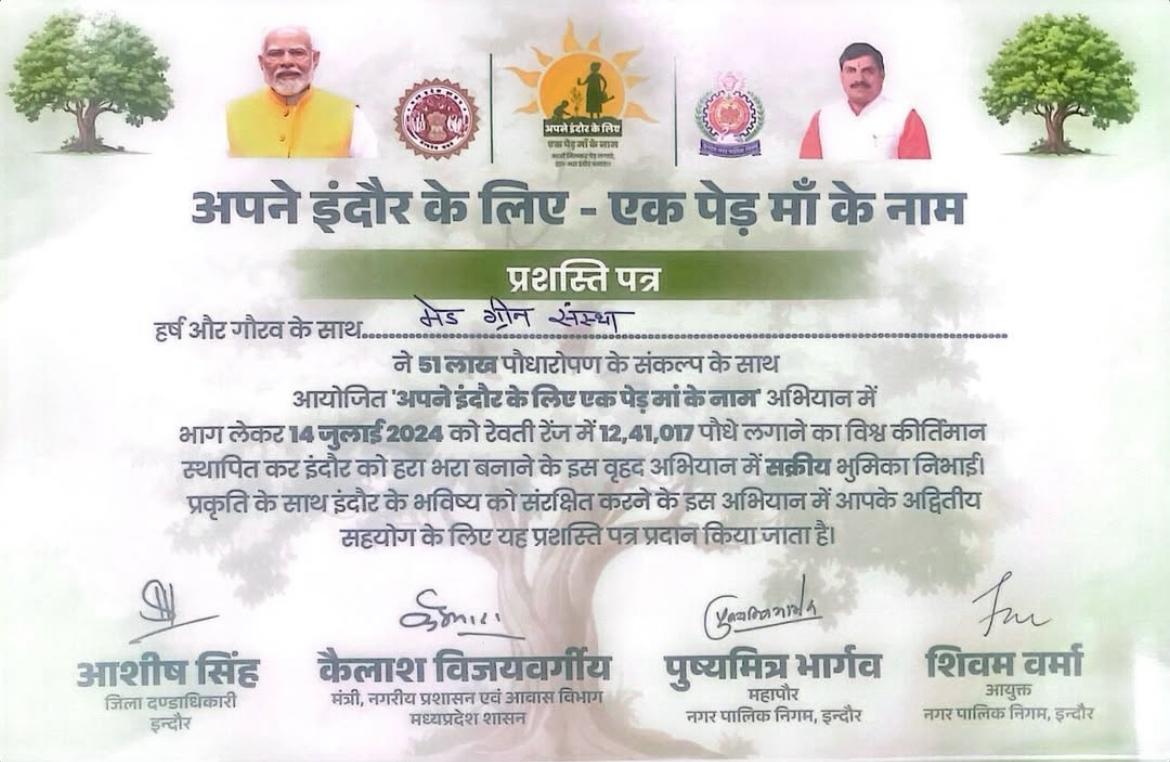 अपने इंदौर के लिए
एक पेड़ माँ के नाम
अपने इंदौर के लिए - एक पेड़ माँ के नाम
प्रशस्ति पत्र
हर्ष और गौरव के साथ.......... मेड ग्रीन संस्था ..........
ने 51 लाख पौधारोपण के संकल्प के साथ
आयोजित 'अपने इंदौर के लिए एक पेड़ मां के नाम' अभियान में
भाग लेकर 14 जुलाई 2024 को रेवती रेंज में 12,41,017 पौधे लगाने का विश्व कीर्तिमान
स्थापित कर इंदौर को हरा भरा बनाने के इस वृहद अभियान में सक्रीय भूमिका निभाई।
प्रकृति के साथ इंदौर के भविष्य को संरक्षित करने के इस अभियान में आपके अद्वितीय
सहयोग के लिए यह प्रशस्ति पत्र प्रदान किया जाता है।
आशीष सिंह
जिला दण्डाधिकारी
इन्दौर
कैलाश विजयवर्गीय
मंत्री, नगरीय प्रशासन एवं आवास विभाग
मध्यप्रदेश शासन
पुष्यमित्र भार्गव
महापौर
नगर पालिक निगम, इन्दौर
शिवम वर्मा
आयुक्त
नगर पालिक निगम, इन्दौर